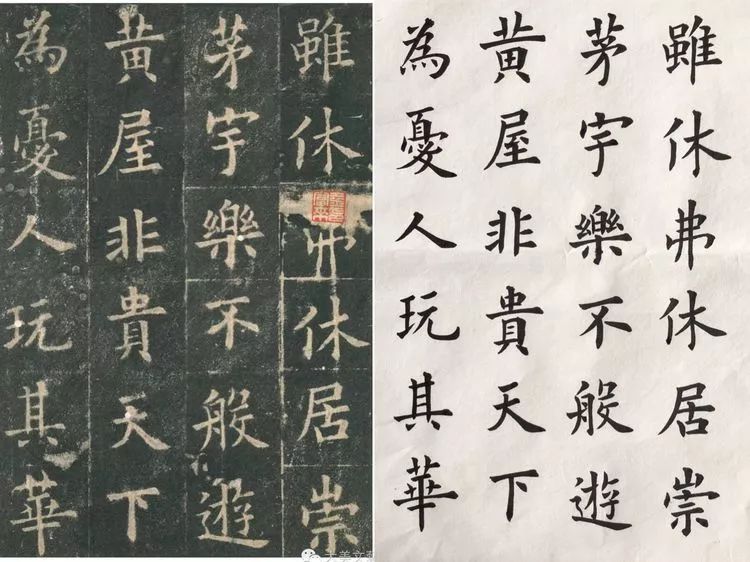 雖休弗休居崇
茅宇樂不般遊
黄屋非貴天下
為憂人玩其華
雖休弗休居崇
茅宇樂不般遊
黄屋非貴天下
為憂人玩其華